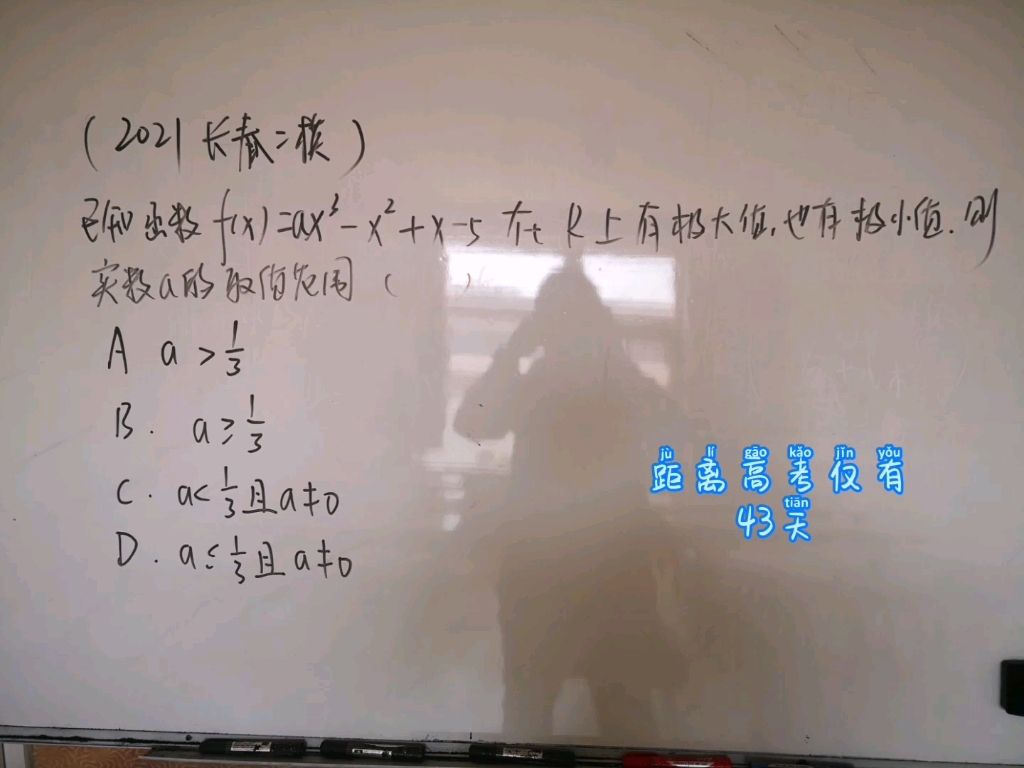 (2021长春二模)
已知函数f(x)=ax³-x²+x-5在R上有极大值,也有极小值.则
实数a的取值范围( )
A a>1/3
B. a≥1/3
C. a<1/3且a≠0
D. a≤1/3且a≠0
jù lí gāo kǎo jǐn yǒu
距离高考仅有
tiān
43天